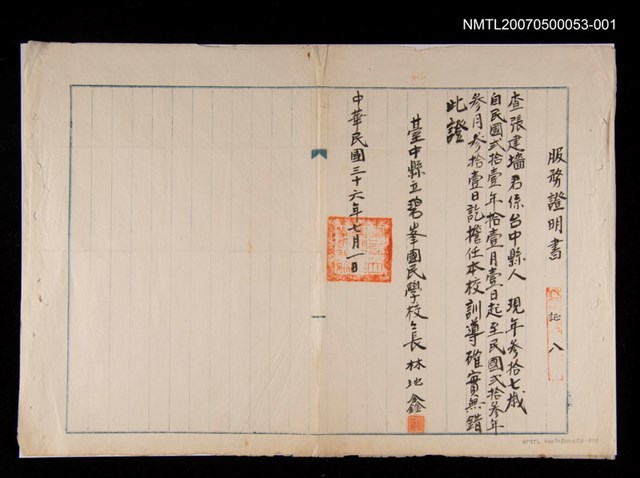 NMTL20070500053-001
服務證明書
証八
查張建墻君係台中縣人 現年參拾七歲
自民國貳拾壹年拾壹月壹日起至民國貳拾參年
參月參拾壹日訖擔任本校訓導確實無錯
此證
臺中縣立碧峯國民學校校長 林地鑫
中華民國三十六年七月一日